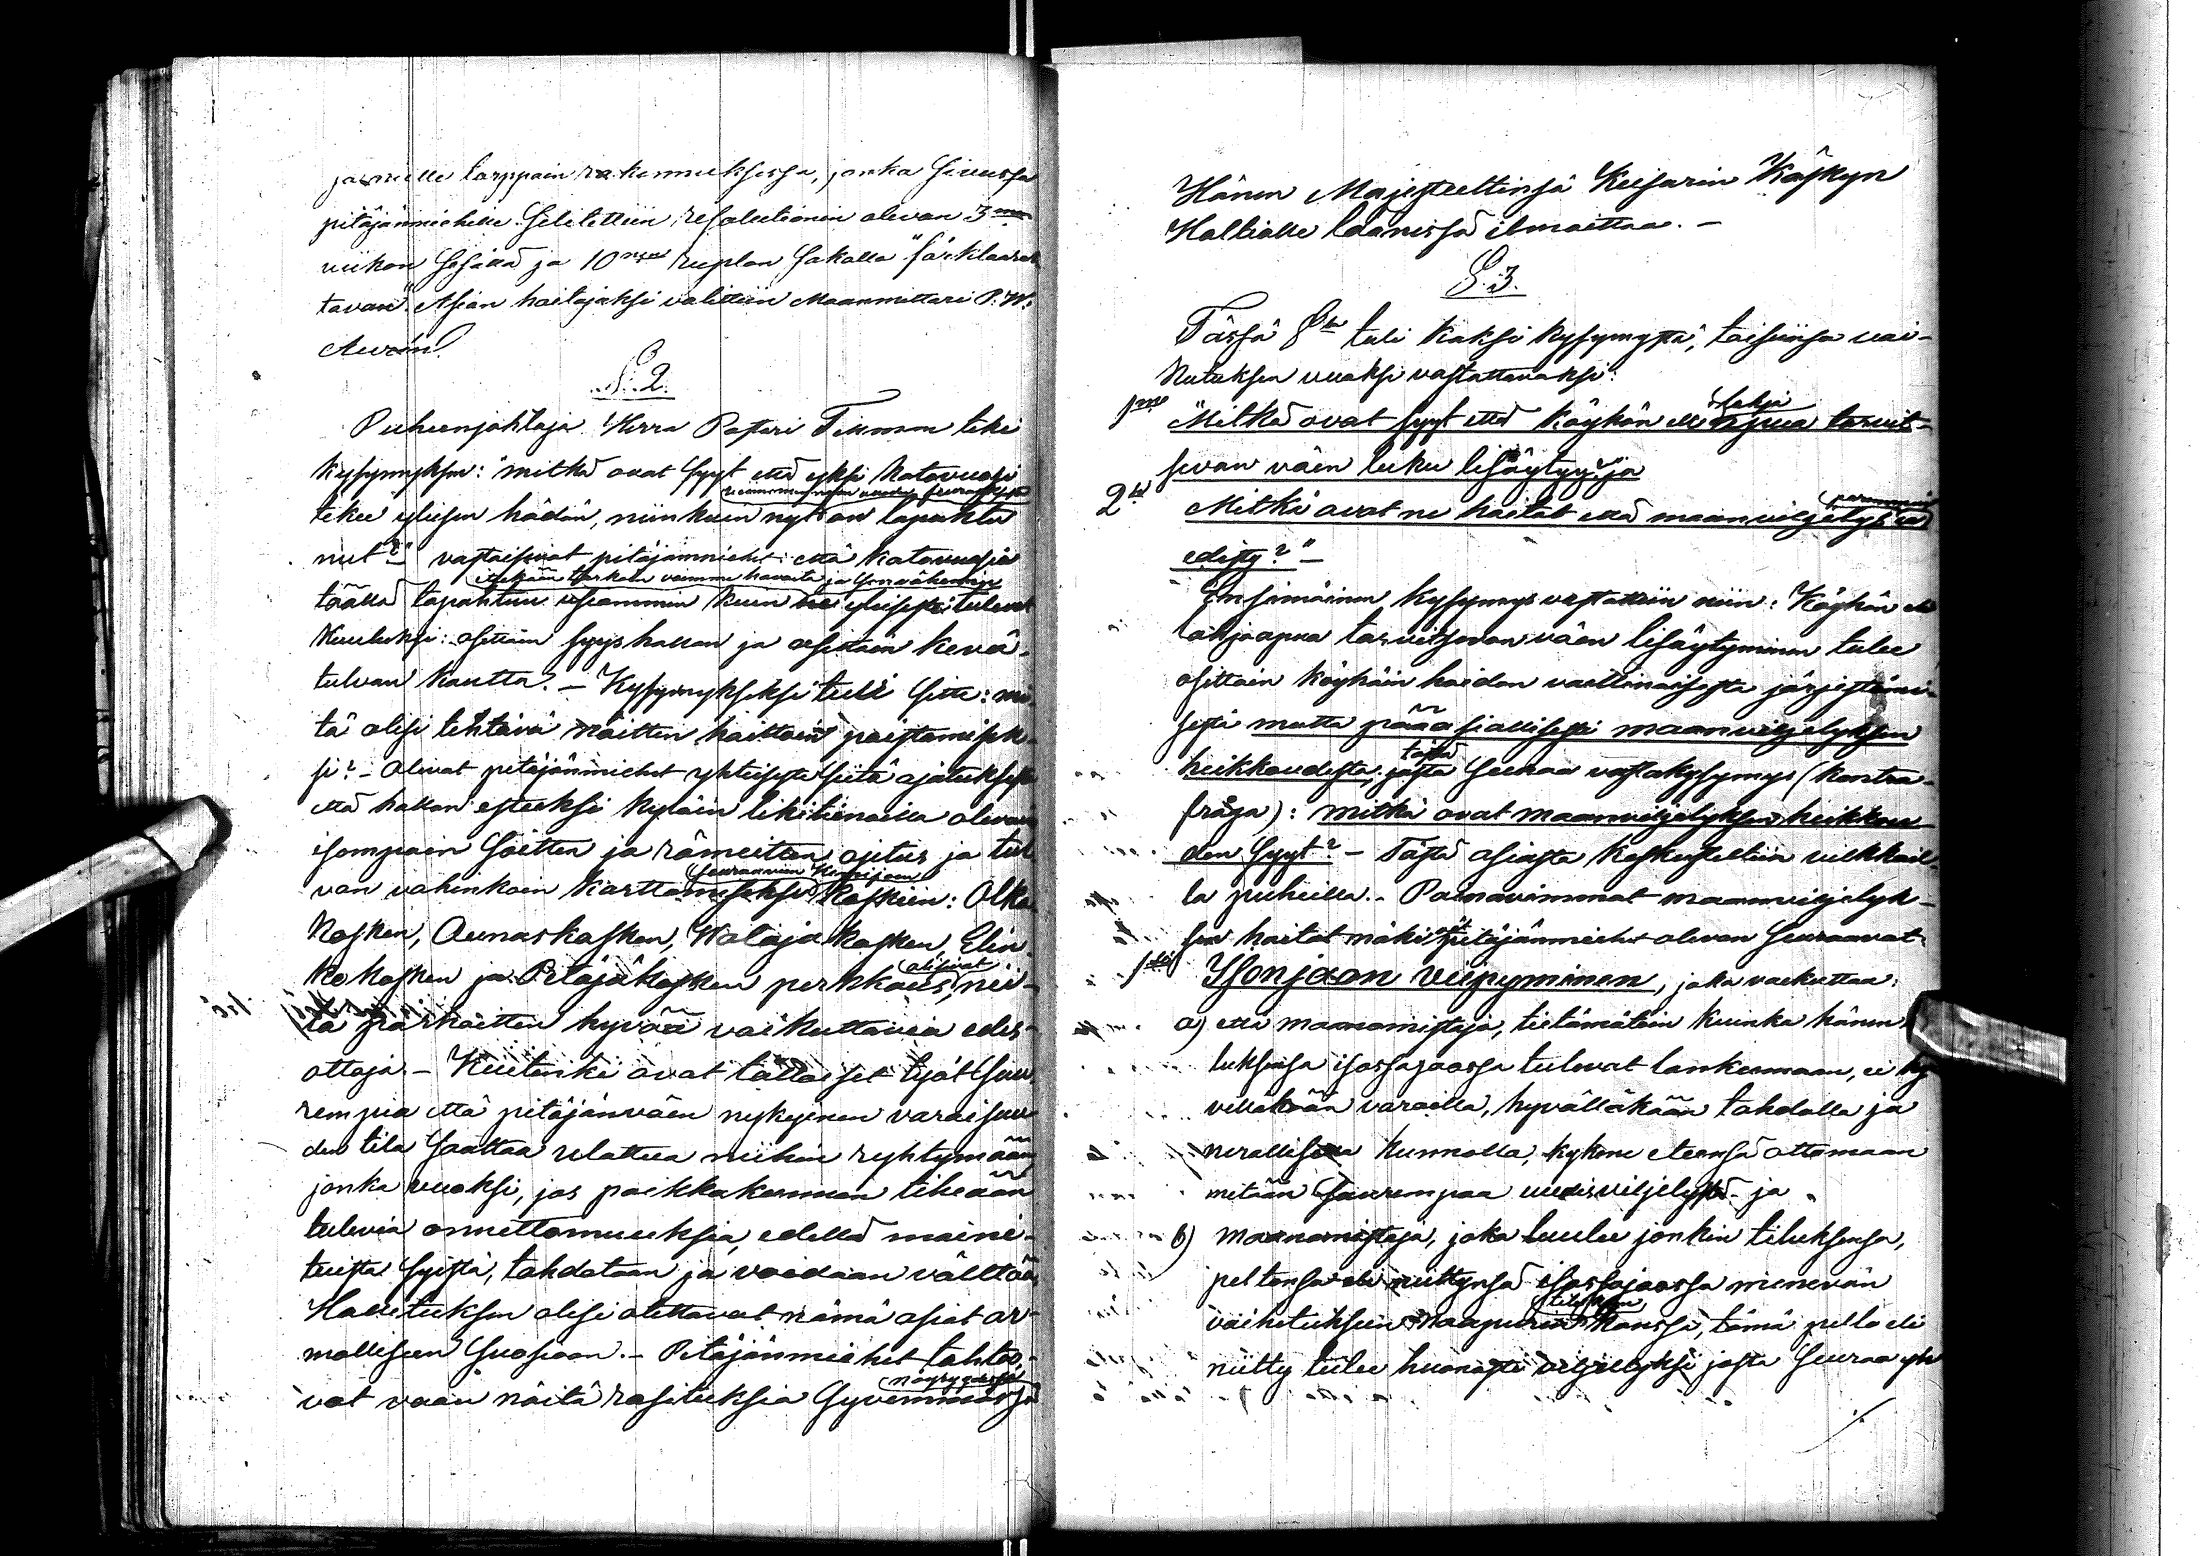 ja mulle torppain rakennuksessa, jonka sivussa
pitäjänmiehille selitettiin resolutionin olevan 3men
viikon sisällä ja 10nen ruplan sakolla "förklarat-
tavan". Asian hoitajaksi valittiin Maanmittari P. W.
§. 2.
Puheenjohtaja Herra Pastori Timman teki
kysymyksen: "mitkä ovat syyt että yksi katovuosi
tekee yleisen hädän, niinkuin nyt on tapahtu
nut?" vastaisivat pitäjänmiehet: että katovuosia
täällä tapahtuu useammin kuin ne yleisesti tulevat
kuuluksi: osittain syys hallan ja osittain kevä-
tulvan kautta. – Kysymykseksi tuli sitte: mi
tä olisi tehtävä näitten haittain poistamisek-
si? – Olivat pitäjänmiehet yhteisestä siitä ajatuksesta
että hallan esteeksi kyläin likitienoilla olevain
isompain soitten ja rämeitten ojitus ja tul
van vahinkoin karttamiseksi seuraavien Kemijoen koskien: Olka
kosken, Aunaskosken, Walajakosken,
kokosken ja Petäjäkosken perkkaus, olisivat nii-
tä parhaitten hyvää vaikuttavia edes-
ottoja. – Kuitenki ovat tällaiset työt suu
rempia että pitäjänväen nykyinen varaisuu
den tila saattaa ulottua niihin ryhtymään
jonka vuoksi, jos paikkakunnan tiheään
tulevia onnettomuuksia, edellä maini-
tuista syistä, tahdotaan ja voidaan välttää
Hallituksen olisi otettavat nämä asiat ar-
molliseen suosioon. – Pitäjänmiehet tahtoi-
vat vaan näitä rasituksia syvimmässä nöyryydessä
Hänen Majesteettinsä Keisarin Käskyn
Haltialle läänissä ilmoittaa. –
§. 3.
Tässä §:ssä tuli kaksi kysymystä, toisiinsa vai-
kutuksen vuoksi vastattavaksi:
1mo "Mitkä ovat syyt että köyhän eli lahja apua tarvit-
sevan väen luku lisäytyy? ja
2do Mitkä ovat ne haitat että maanviljelys ei paremmin
edisty?" –
Ensimäinen kysymys vastattiin niin: Köyhän eli
lahjaapua tarvitsevan väen lisäytyminen tulee
osittain köyhäin hoidon vaillinaisesta järjestämi-
sestä mutta pääasiallisesti maanviljelyksen
heikkoudesta, tästä seuraa vastakysymys (kontra-
fråga): mitkä ovat maanviljelyksen heikkou-
den syyt? – Tästä asiasta keskusteltiin vilkkail-
la puheilla. – Painavimmat maanviljelyk-
sen haitat näkivät pitäjänmiehet olevan seuraavat:
1ksi Isonjaon viipyminen, joka vaikuttaa:
a) että maanomistaja, tietämätöin kuinka hänen ti
luksensa isossajaossa tulevat lankeemaan, ei hy
villäkään varoilla, hyvälläkään tahdolla ja
nerollisella kunnolla, kykene eteensä ottamaan
mitään suurempaa uudisviljelystä ja
b) maanomistaja, joka luulee jonkin tiluksensa,
peltonsa eli niittynsä isossajaossa menevän
vaihetukseen naapurin tiluksen kanssa, tämä pelto eli
niitty tulee huonosti viljellyksi josta seuraa yh
./.